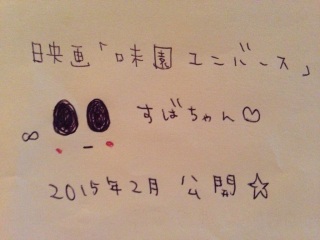 映画「味園ユニバース」
すばちゃん♡
2015年2月 公開☆